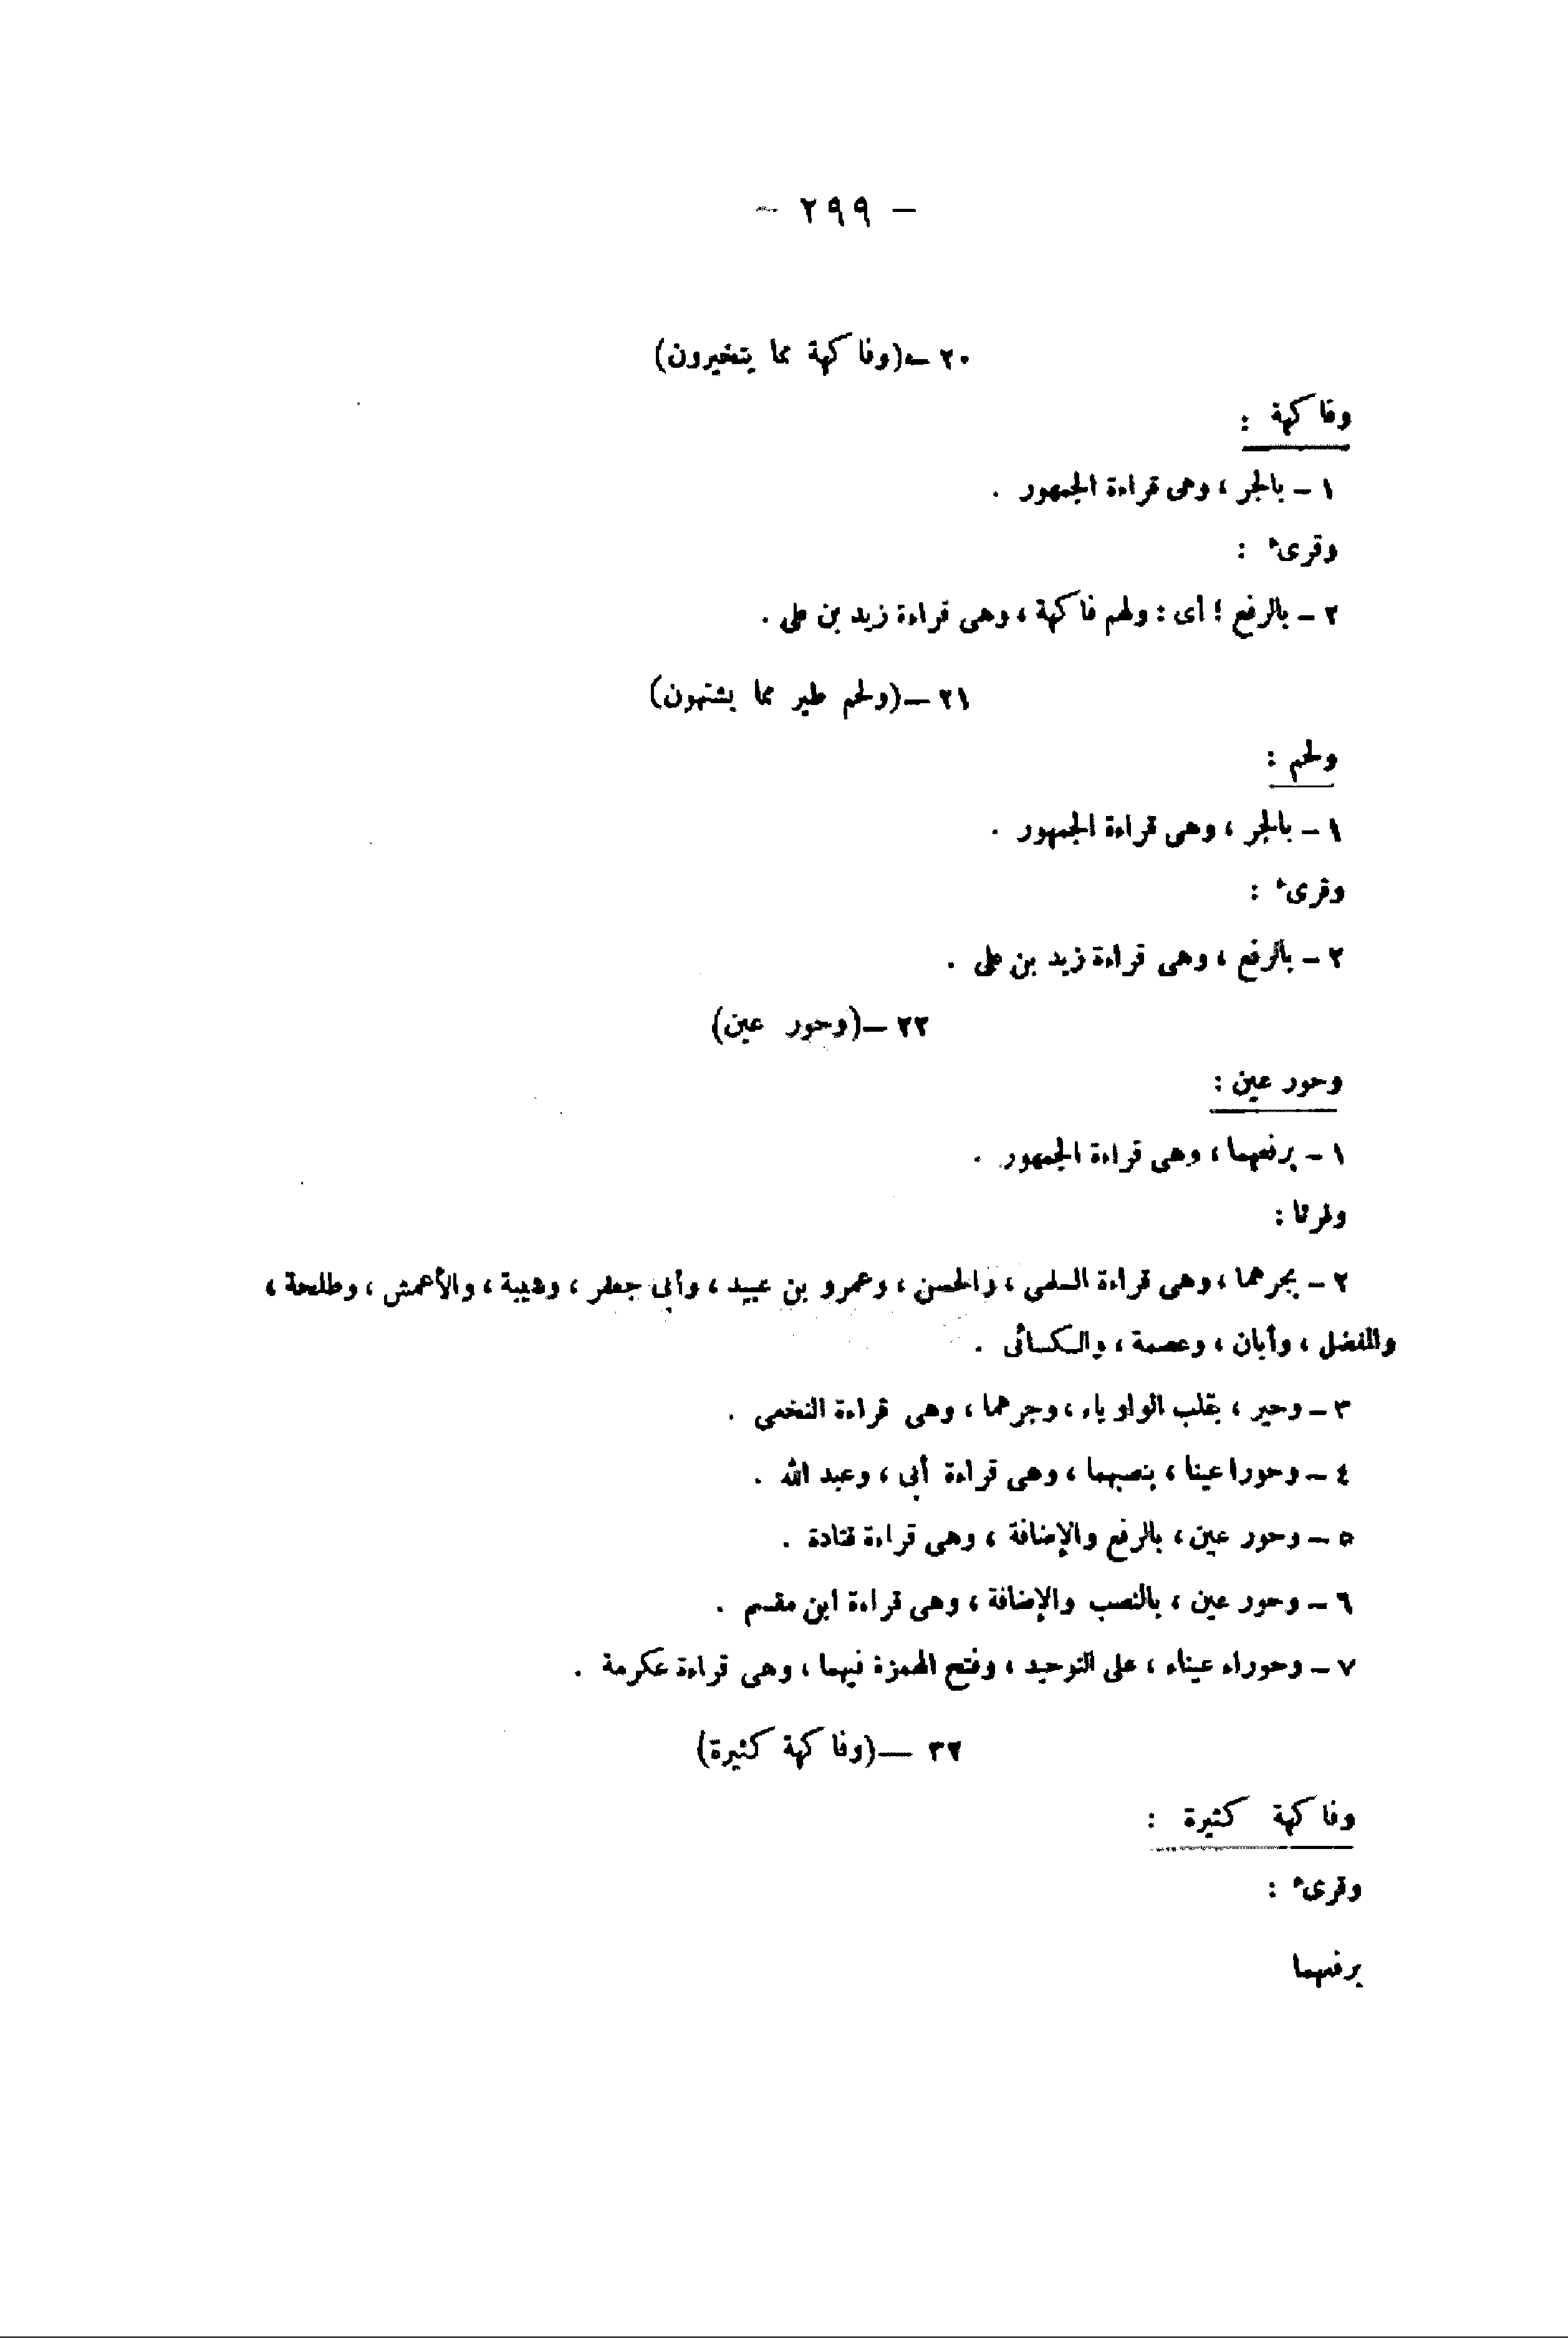 - ٢٩٩ -
٢٠ - (وفاكهة مما يتخيرون)
وفاكهة :
١ - بالجر ، وهى قراءة الجمهور .
وقرىء :
٢ - بالرفع ؛ أى : ولهم فاكهة ، وهى قراءة زيد بن على .
٢١ - (ولحم طير مما يشتهون)
ولحم :
١ - بالجر ، وهى قراءة الجمهور .
وقرىء :
٢ - بالرفع ، وهى قراءة زيد بن على .
٢٢ - (وحور عين)
وحور عين :
١ - برفعهما ، وهى قراءة الجمهور .
وقرئا :
٢ - بجرهما ، وهى قراءة السلمى ، والحسن ، وعمرو بن عبيد ، وأبى جعفر ، وشيبة ، والأعمش ، وطلحة ،
والمفضل ، وأبان ، وعصمة ، والكسائى .
٣ - وحير ، بقلب الواو ياء ، وجرهما ، وهى قراءة النخعى .
٤ - وحورا عينا ، بنصبهما ، وهى قراءة أبى ، وعبد الله .
٥ - وحور عين ، بالرفع والإضافة ، وهى قراءة قتادة .
٦ - وحور عين ، بالنصب والإضافة ، وهى قراءة ابن مقسم .
٧ - وحوراء عيناء ، على التوحيد ، وفتح الهمزة فيهما ، وهى قراءة عكرمة .
٣٢ - (وفاكهة كثيرة)
وفاكهة كثيرة :
وقرىء :
برفعهما